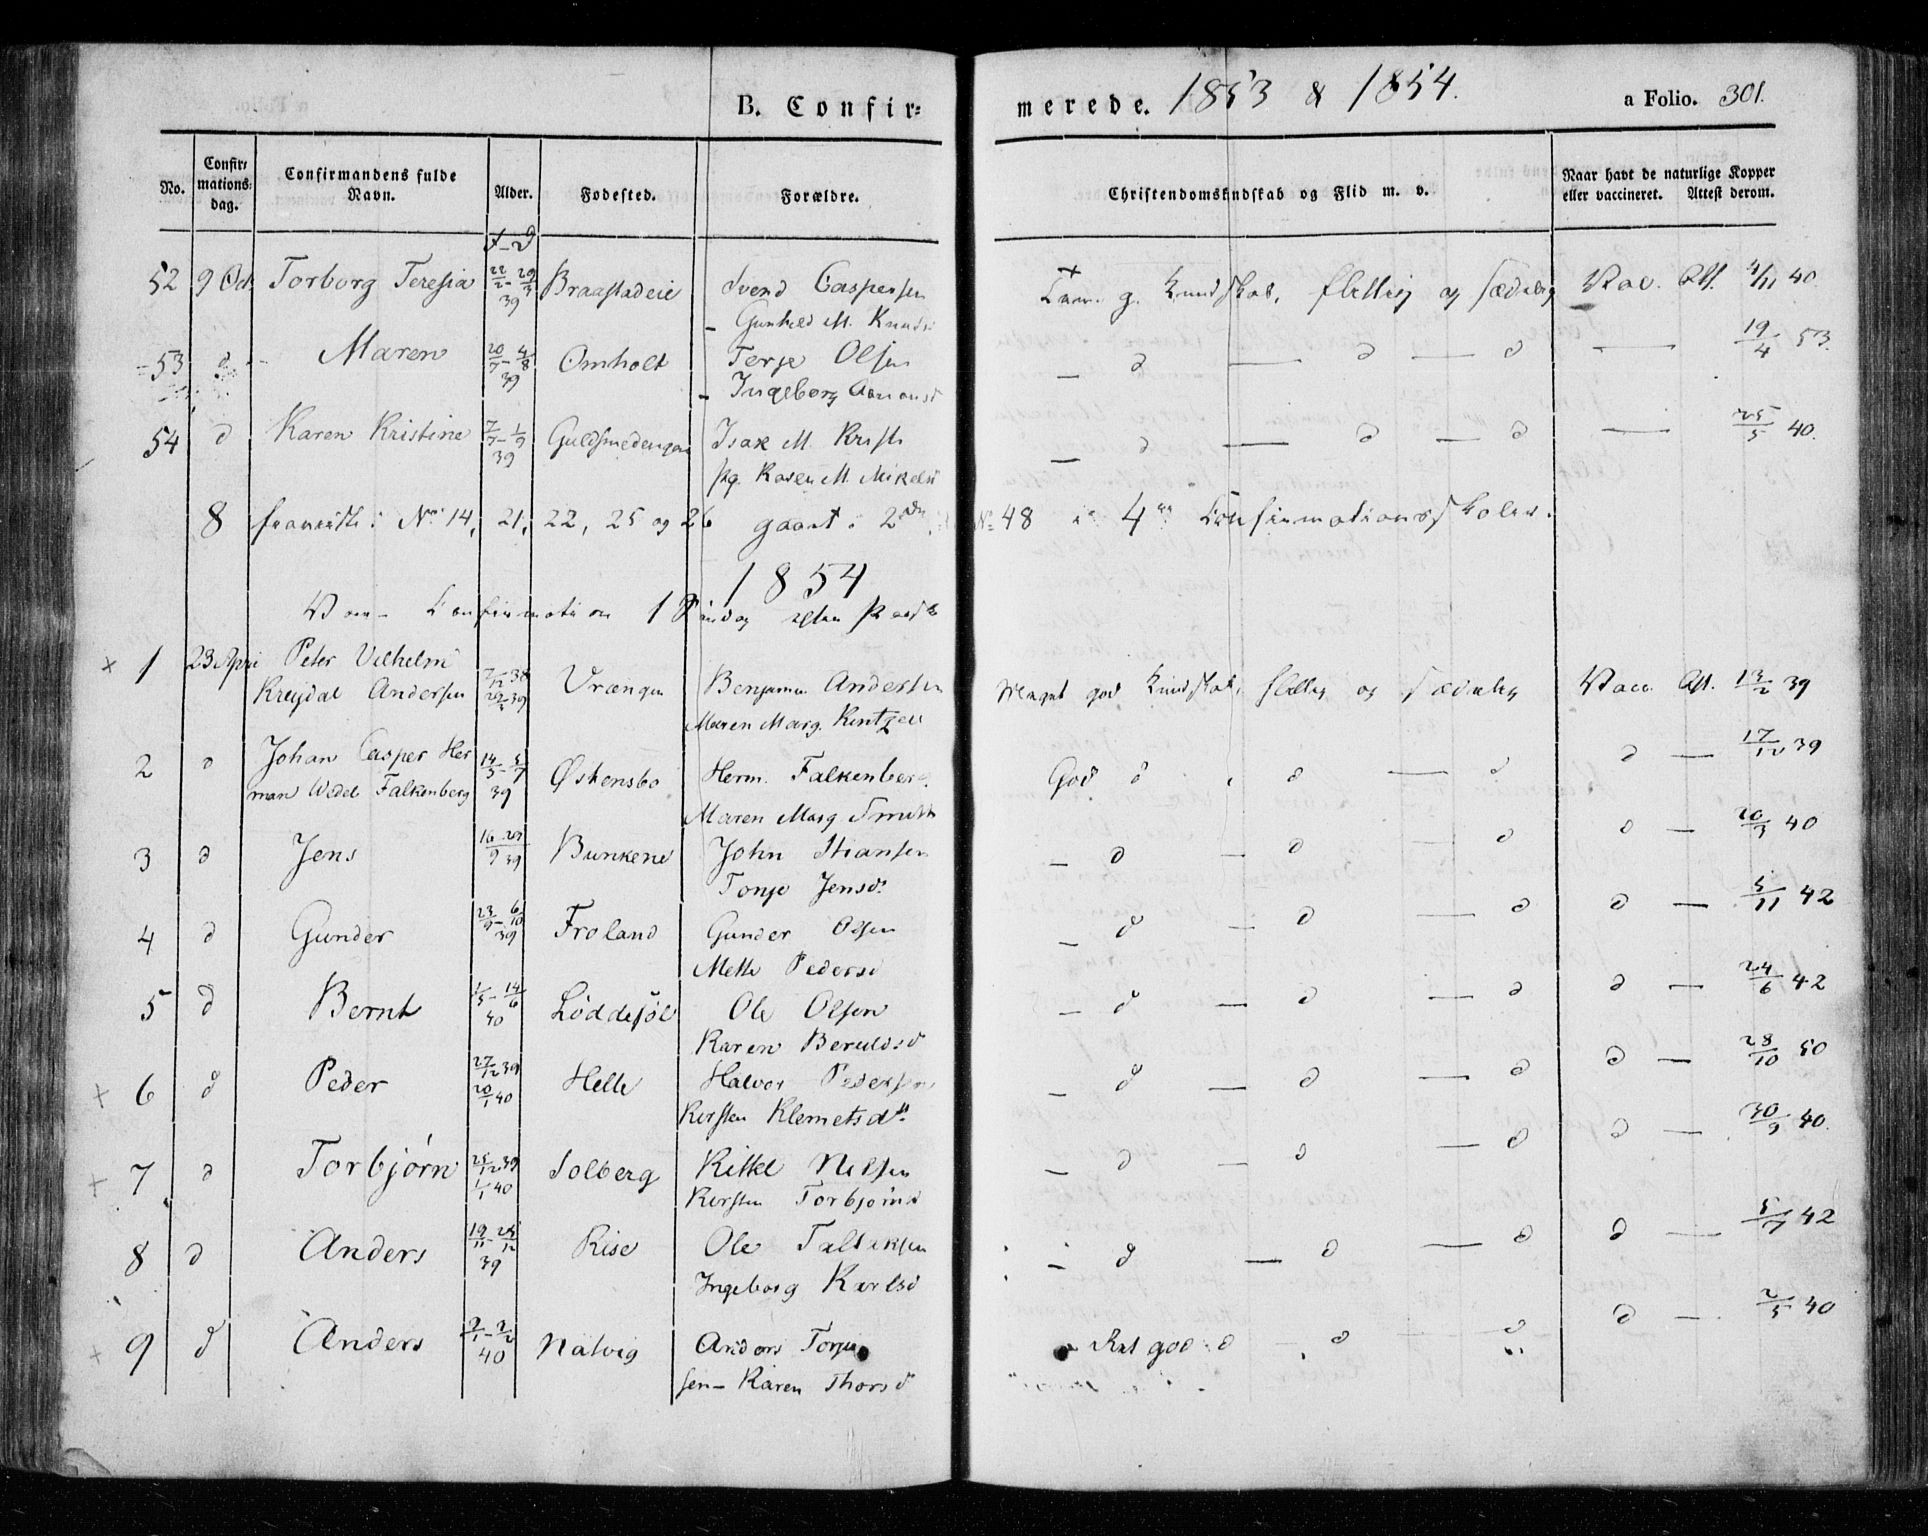 B. Confir=
merede. 1853 & 1854.
a Folio. 301.
No.
Confir=
mations=
dag.
Confirmandens fulde
Navn.
Alder.
Fodested.
Forældre.
Christendomskndskab og Flid m. v.
Naar havt de naturlige Kopper
eller vaccineret. Attest derom.
f - d
52 9 Oct Torborg Teresia 22/2 - 29/3 39 Braastadeie Svend Caspersen
Gunhild M. Knuds
g. Kundskab, flittig og sædelig Vac. Att. 4/11 40
53 d - Maren 20/7 - 4/8 39 Omholt Terje Olsen
- Ingeborg
- d - d - d - 19/4 53.
54 d Karen Kristine 7/7 - 1/9 39 Isak M. Krist
Karen M. Mikels
- d - d - d - 25/5 40.
8 No 14, 21, 22, 25 og 26 gaaet i 2den No 48 4 Confirmationsskoler.
1854
Confirmation 1 Søndag efter Paaske
1 23 April Peter Vilhelm
Kreydal Andersen 7/12 38 Vrængen Benjamin Andersen
Maren Marg. Kintzell
Meget god Kundskab, flittig og sædelig Vacc. Att. 13/2 39
2 d Johan Casper Her
man Wedel Falkenberg 14/5 - 5/7 39 Øskensbo Herm. Falkenberg
Maren Marg Smith
God d d - d d - 17/12 39
3 d Jens 16 - 29/9 39 Bunkene John Stiansen
Tonje Jensd.
- d - d - d d - 20/3 40
4 d Gunder 23/9 - 6/10 39 Froland Gunder Olsen
Mette Pedersd
- d - d - d d - 5/11 42
5 d Bernt 1/5 - 14/6 40 Løddesøl Ole Olsen
Karen Beruldsd
- d - d - d d - 24/6 42
6 d Peder 27/12 39 20/1 40 Helle Halvor Pedersen
Kirsten Klemetsdtr
- d - d - d d - 28/10 50
7 d Torbjørn 25/12 39 1/1 40 Solberg Kittel Nilsen
Kirsten Torbjørnsd
- d - d - d d - 30/9 40.
8 d Anders 19/11 - 25/12 39 Rise Ole Tallaksen
Ingeborg Karlsd
- d - d - d d - 5/7 42
9 d Anders 9/1 - 2/2 40 Natvig Anders Torje
sen - Karen Thorsd
god d - d - d d - 2/5 40